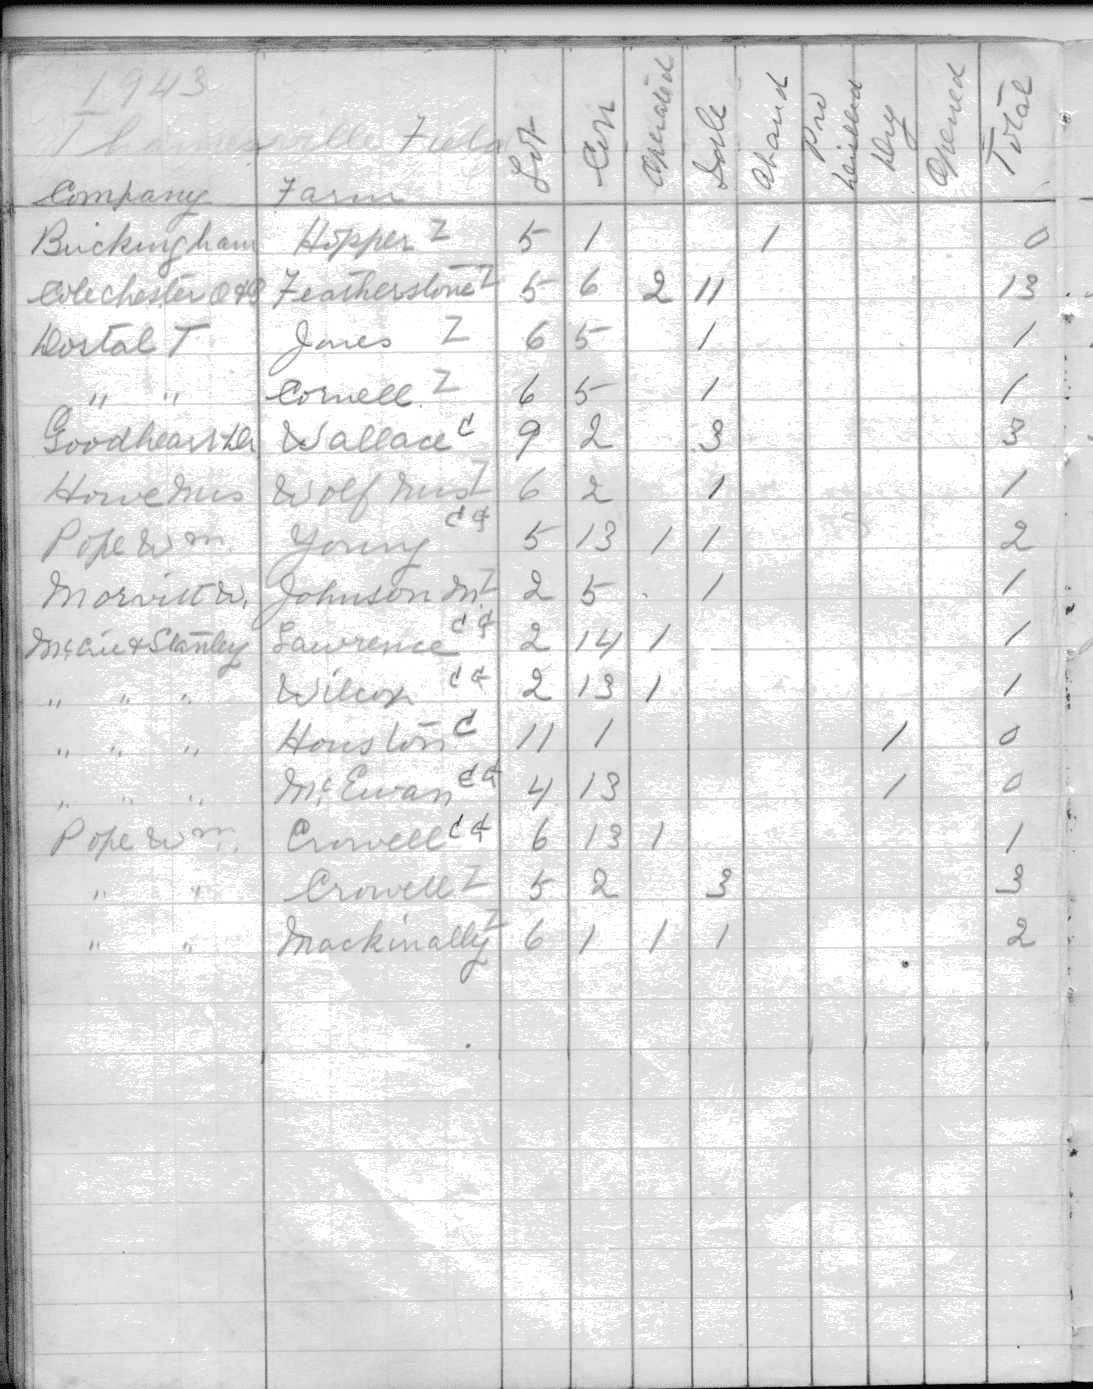 1943
Thamesville Field
Company Farm Lot Con Operated Idle Aband Pro Drilled Dry Opened Total
Buckingham Hopper Z 5 1 1 0
Colechester O & G Featherstone Z 5 6 2 11 13
Dostal T Jones Z 6 5 1 1
" " Cornell Z 6 5 1 1
Goodheart Wallace C 9 2 3 3
Howe Mrs Wolf Mrs Z 6 2 1 1
Pope Wm. Young C G 5 13 1 1 2
W. Johnson M. Z 2 5 1 1
& Stanley Lawrence C G 2 14 1 1
" " " Wilcox C G 2 13 1 1
" " " Houston C 11 1 1 0
" " " McEwan C G 4 13 1 0
Pope Wm. Crowell C G 6 13 1 1
" " Crowell Z 5 2 3 3
" " Mackinally Z 6 1 1 1 2